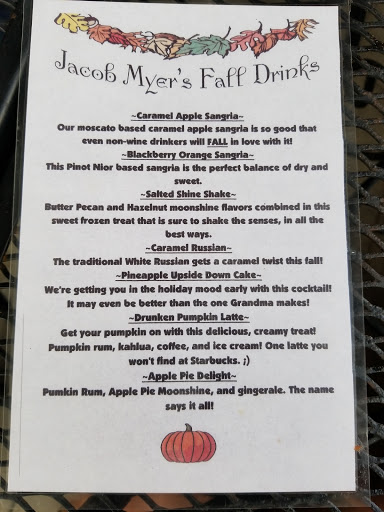 Jacob Myer's Fall Drinks
~Caramel Apple Sangria~
Our moscato based caramel apple sangria is so good that
even non-wine drinkers will FALL in love with it!
~Blackberry Orange Sangria~
This Pinot Nior based sangria is the perfect balance of dry and
sweet.
~Salted Shine Shake~
Butter Pecan and Hazelnut moonshine flavors combined in this
sweet frozen treat that is sure to shake the senses, in all the
best ways.
~Caramel Russian~
The traditional White Russian gets a caramel twist this fall!
~Pineapple Upside Down Cake~
We're getting you in the holiday mood early with this cocktail!
It may even be better than the one Grandma makes!
~Drunken Pumpkin Latte~
Get your pumpkin on with this delicious, creamy treat!
Pumpkin rum, kahlua, coffee, and ice cream! One latte you
won't find at Starbucks. ;)
~Apple Pie Delight~
Pumkin Rum, Apple Pie Moonshine, and gingerale. The name
says it all!